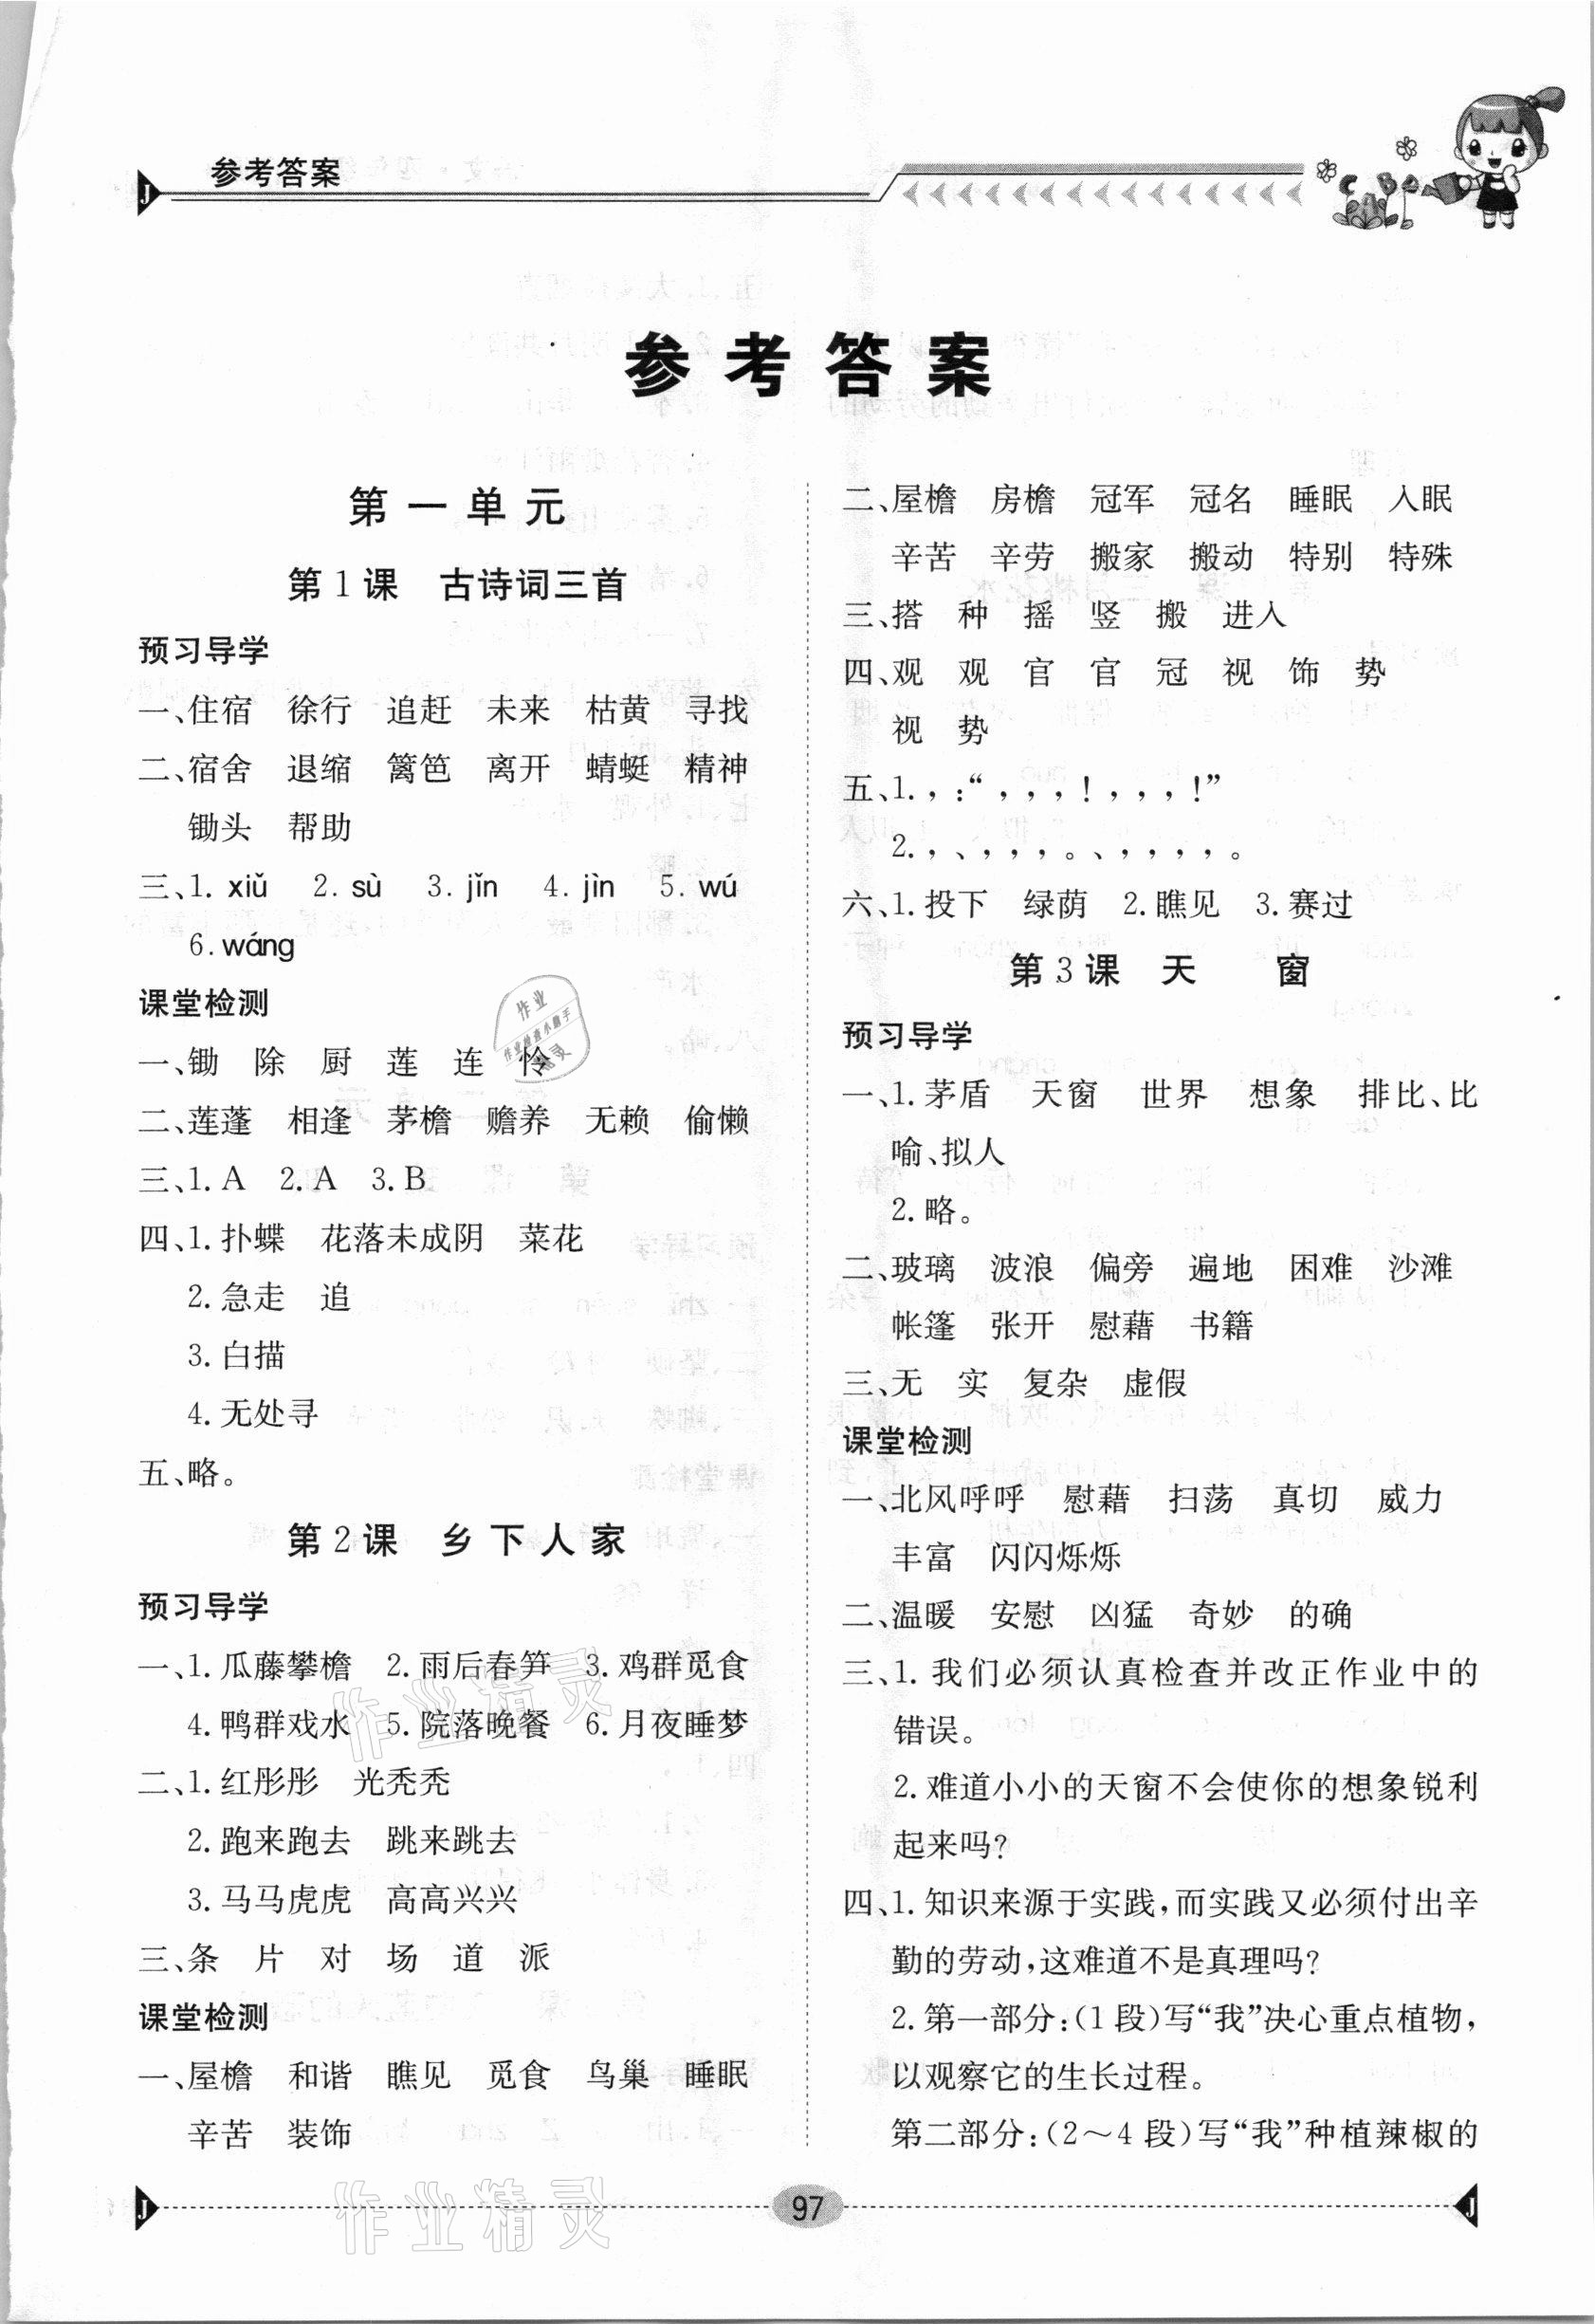 参考答案
参考答案
第一单元
第1课 古诗词三首
预习导学
一、住宿 徐行 追赶 未来 枯黄 寻找
二、宿舍 退缩 篱笆 离开 蜻蜓 精神
锄头 帮助
三、1. xiǔ 2. sù 3. jǐn 4. jìn 5. wú
6. wáng
课堂检测
一、锄 除 厨 莲 连 怜
二、莲蓬 相逢 茅檐 赡养 无赖 偷懒
三、1. A 2. A 3. B
四、1. 扑蝶 花落未成阴 菜花
2. 急走 追
3. 白描
4. 无处寻
五、略。
第2课 乡下人家
预习导学
一、1. 瓜藤攀檐 2. 雨后春笋 3. 鸡群觅食
4. 鸭群戏水 5. 院落晚餐 6. 月夜睡梦
二、1. 红彤彤 光秃秃
2. 跑来跑去 跳来跳去
3. 马马虎虎 高高兴兴
三、条 片 对 场 道 派
课堂检测
一、屋檐 和谐 瞧见 觅食 鸟巢 睡眠
辛苦 装饰
二、屋檐 房檐 冠军 冠名 睡眠 入眠
辛苦 辛劳 搬家 搬动 特别 特殊
三、搭 种 摇 竖 搬 进入
四、观 观 官 官 冠 视 饰 势
视 势
五、1. ，：“，，，！，，，！”
2. ，、，，，。、，，，，。
六、1. 投下 绿荫 2. 瞧见 3. 赛过
第3课 天 窗
预习导学
一、1. 茅盾 天窗 世界 想象 排比、比
喻、拟人
2. 略。
二、玻璃 波浪 偏旁 遍地 困难 沙滩
帐篷 张开 慰藉 书籍
三、无 实 复杂 虚假
课堂检测
一、北风呼呼 慰藉 扫荡 真切 威力
丰富 闪闪烁烁
二、温暖 安慰 凶猛 奇妙 的确
三、1. 我们必须认真检查并改正作业中的
错误。
2. 难道小小的天窗不会使你的想象锐利
起来吗？
四、1. 知识来源于实践，而实践又必须付出辛
勤的劳动，这难道不是真理吗？
2. 第一部分：（1段）写“我”决心重点植物，
以观察它的生长过程。
第二部分：（2～4段）写“我”种植辣椒的
97